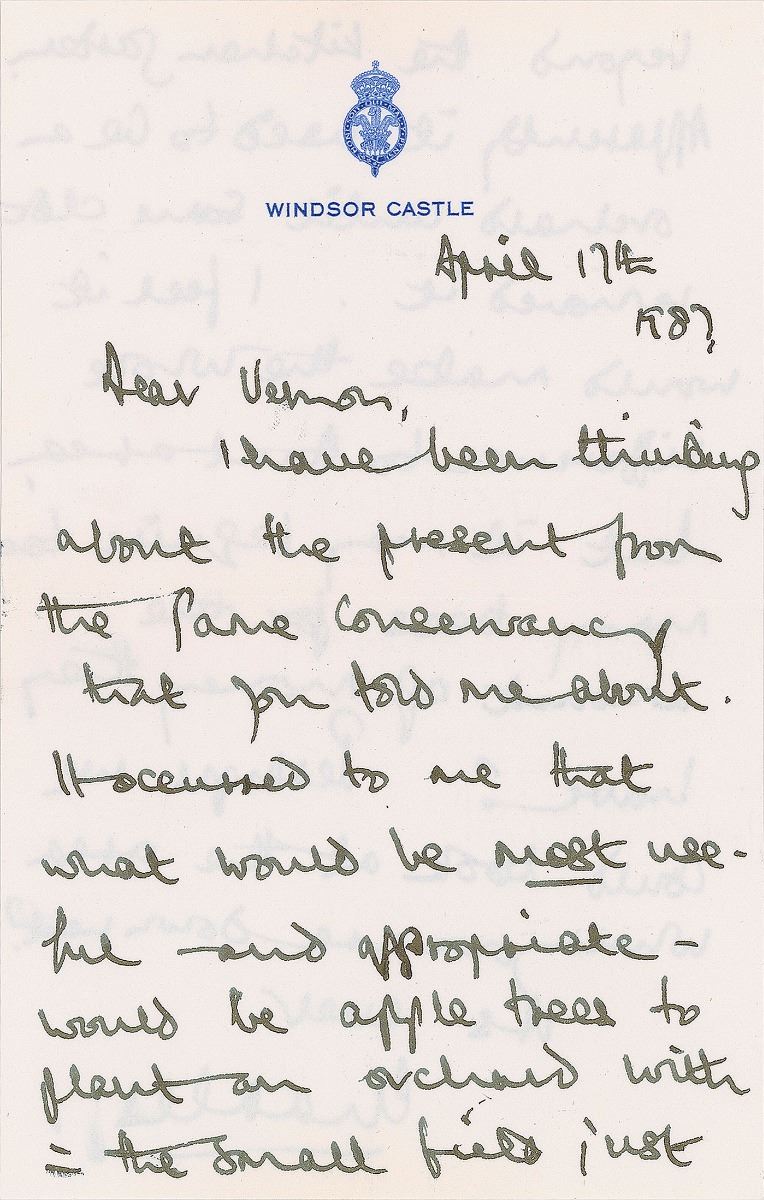 WINDSOR CASTLE
April 17th
1987.
Dear Vernon,
I have been thinking
about the present from
the Game Conservancy
that you told me about.
It occurred to me that
what would be most use-
ful - and appropriate -
would be apple trees to
plant an orchard with
in the small field just